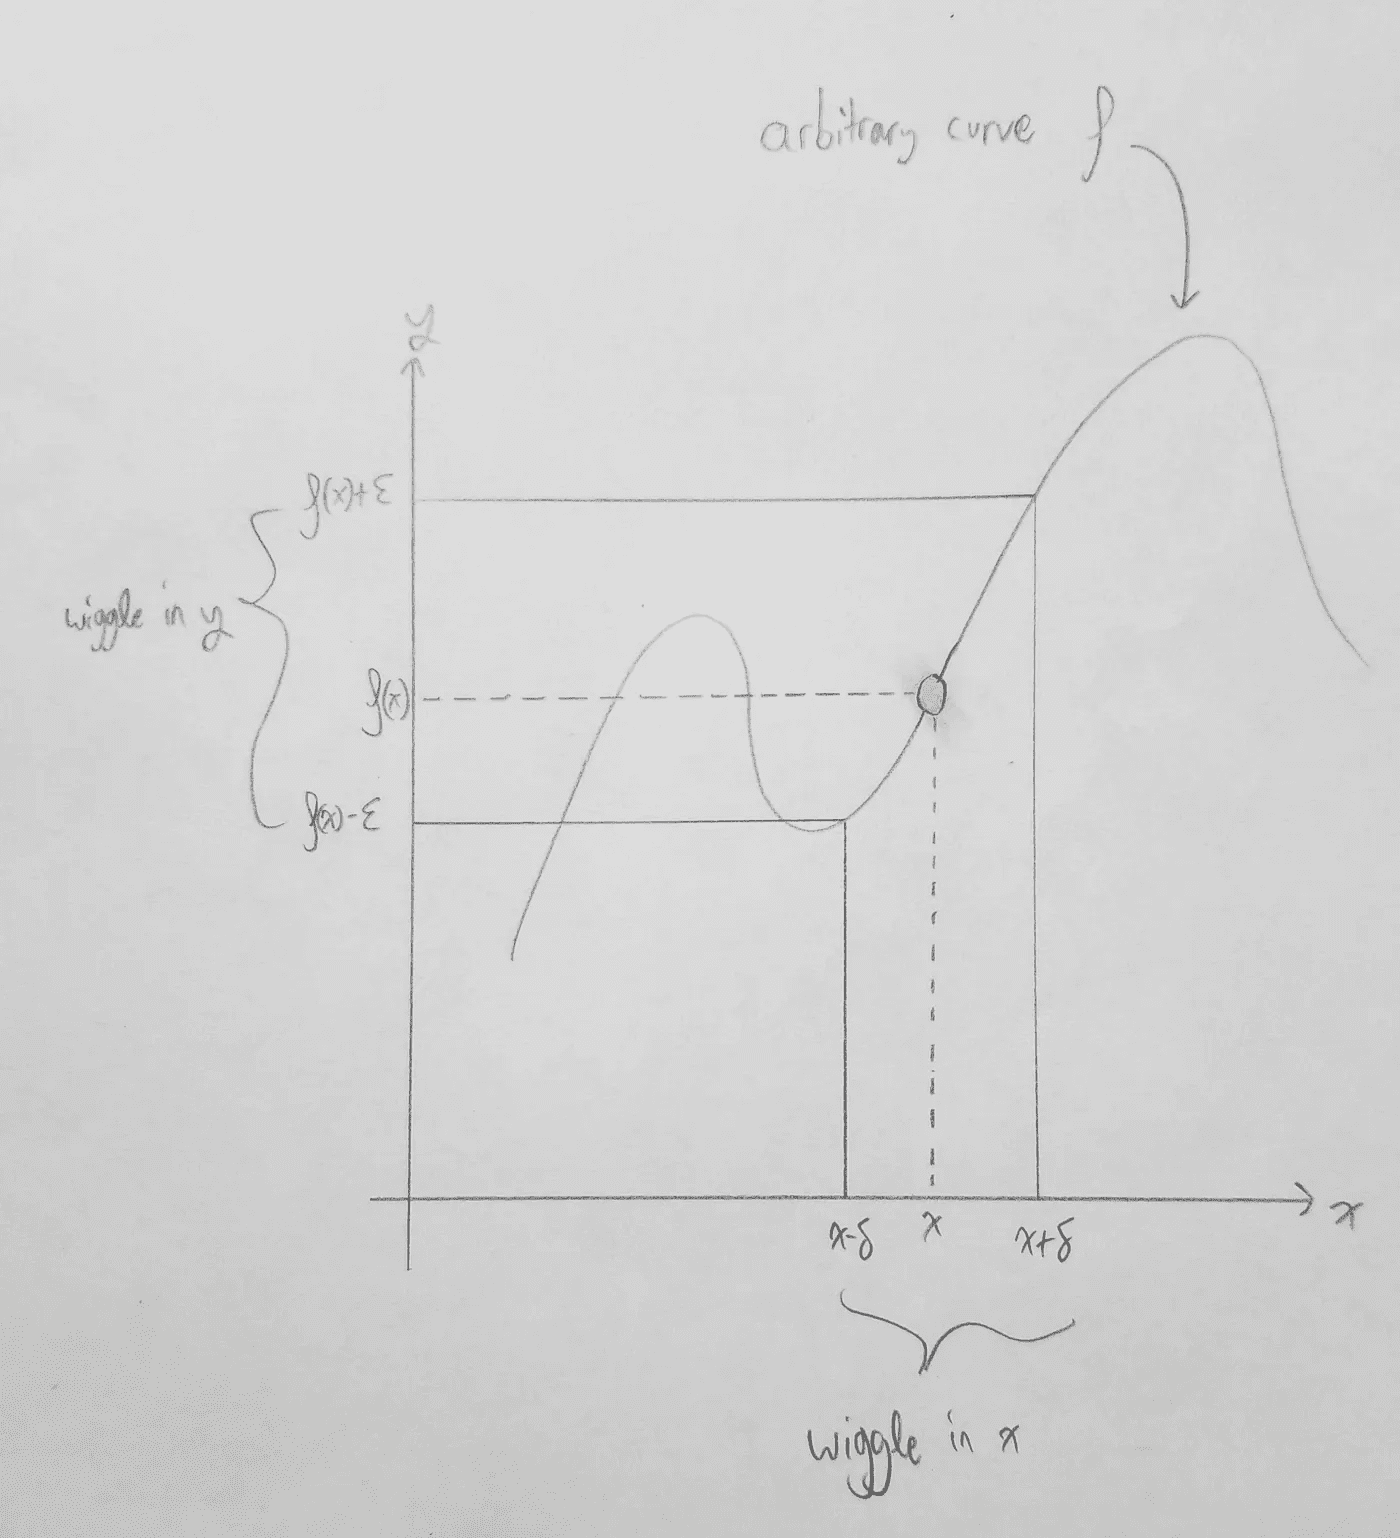 arbitrary curve f
y
f(x)+ε
wiggle in y
f(x)
f(x)-ε
x-δ
x
x+δ
x
wiggle in x